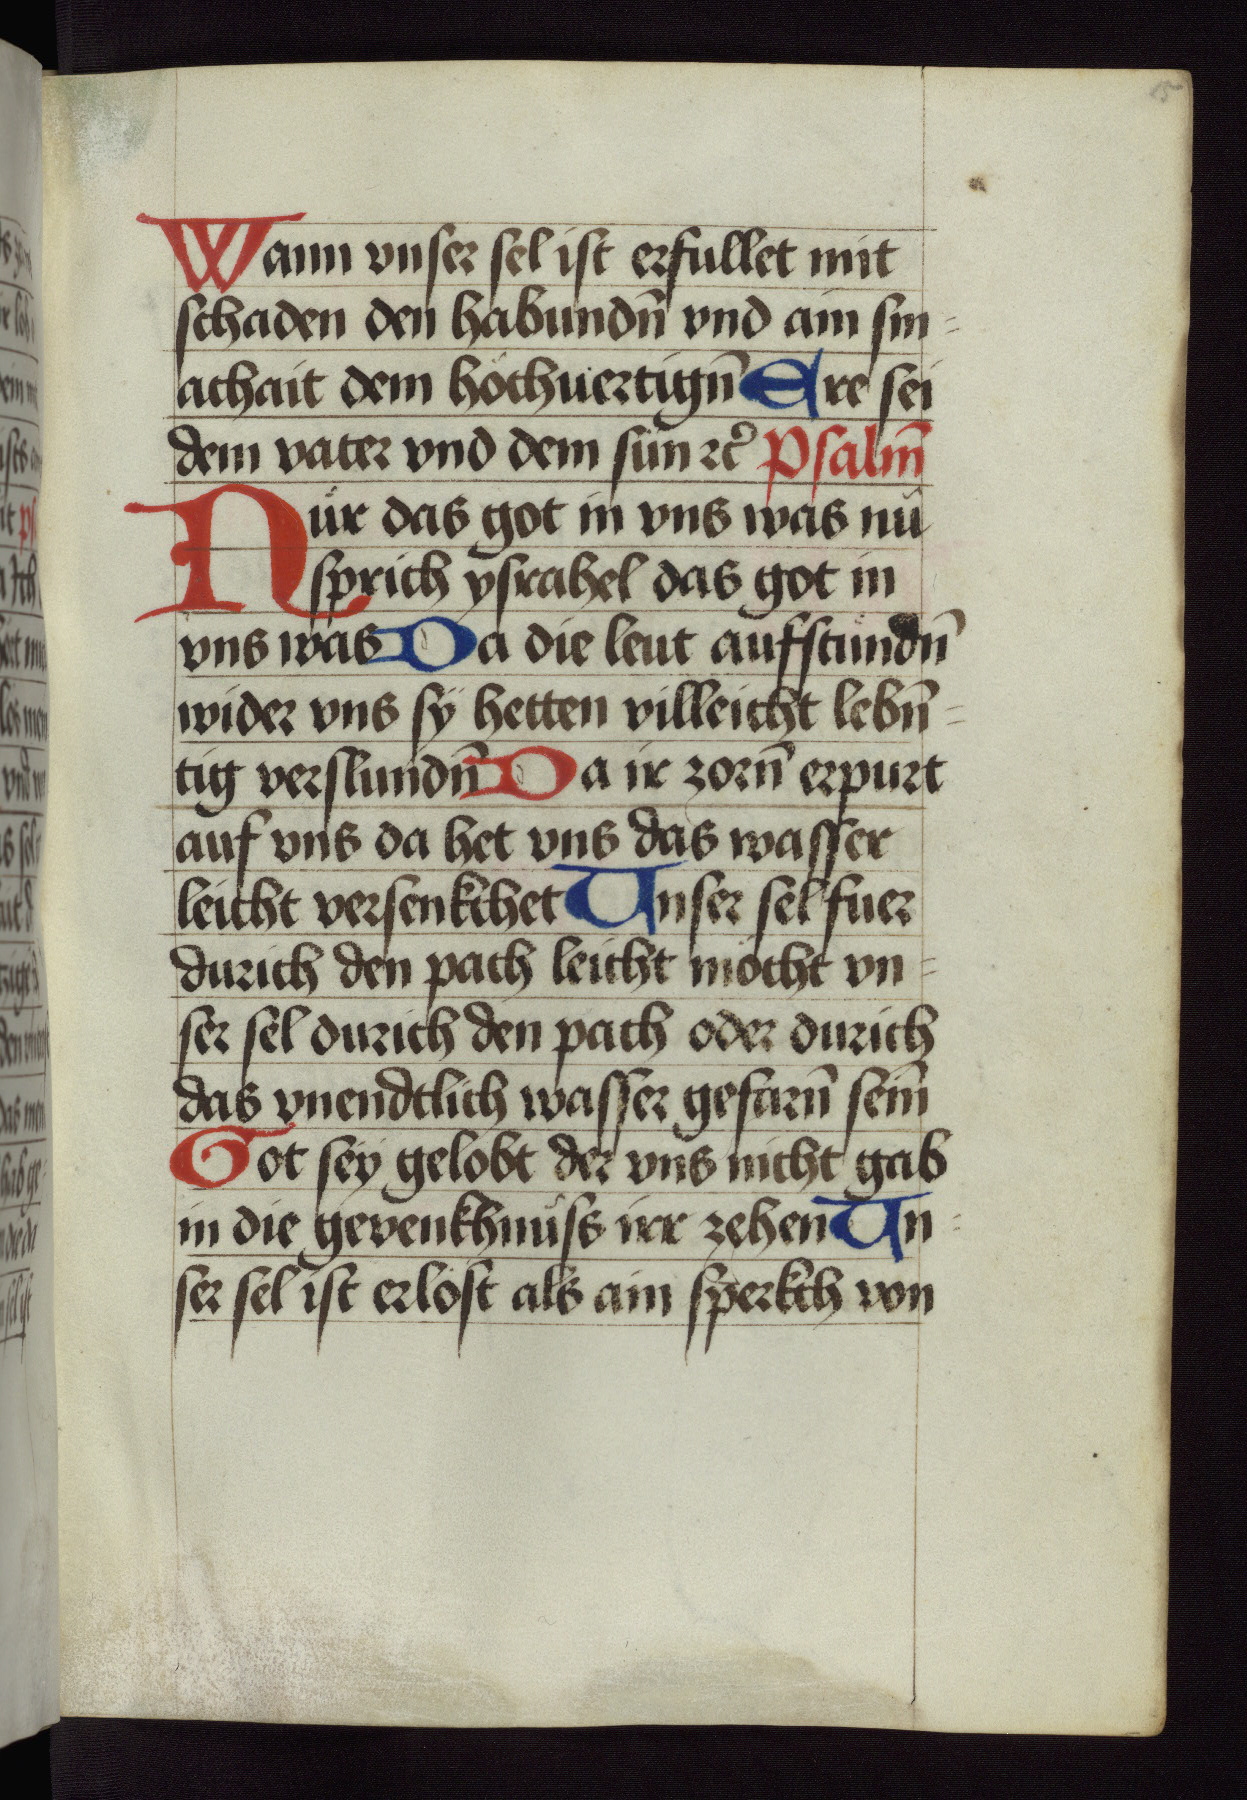 15
Wann vnser sel ist erfullet mit
schaden den habundn̄ vnd ain sm=
achait dem höchuertign̄ Ere sei
dem vater vnd dem sün ꝛc̄ Psalm̄
Nür das got in vns was nü
sprich ysrahel das got in
vns was Da die leut aufstündn̄
wider vns sÿ hetten villeicht lebn̄=
tig verslundn̄ Da ir zorn̄ erpurt
auf vns da het vns das wasser
leicht versenkchet Vnser sel fuer
durich den pach leicht möcht vn=
ser sel durich den pach oder durich
das vnendtlich wasser gefarn̄ sein̄
Got sey gelobt der vns nicht gab
in die gevenkhnüss irr zehen Vn=
ser sel ist erlöst als ain sperkch von